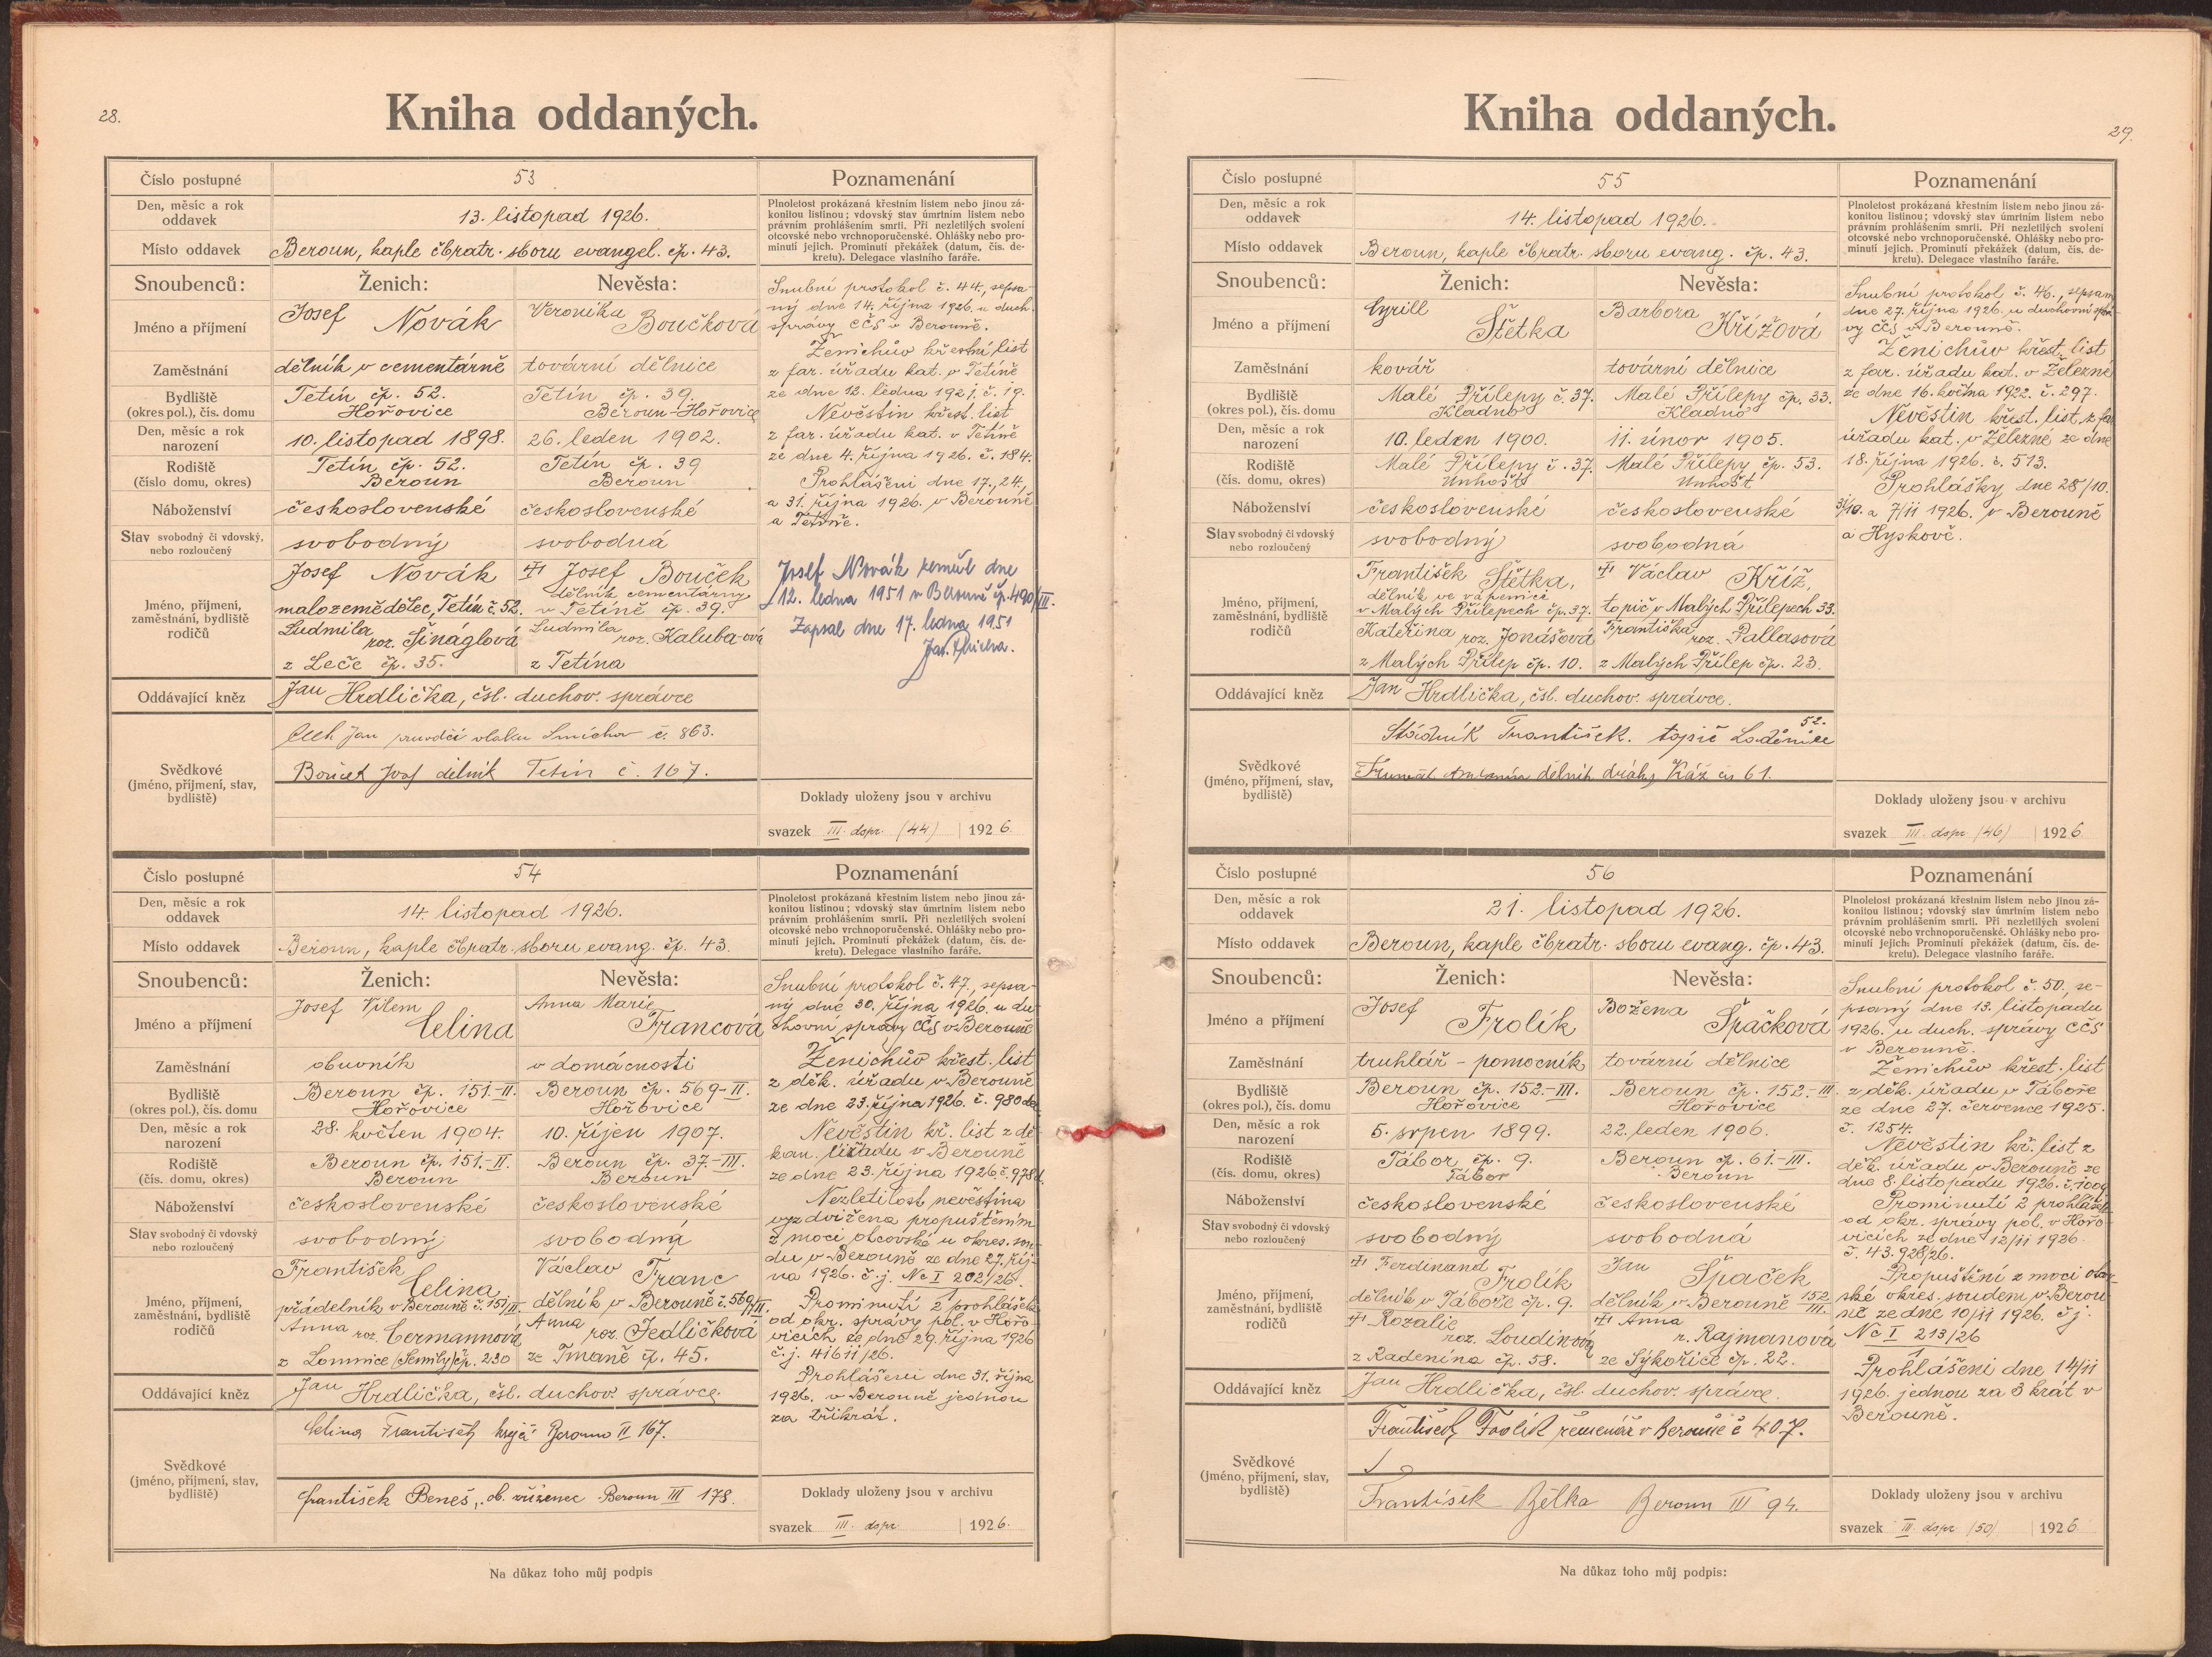 28.
Kniha oddaných.
Číslo postupné
53
Poznamenání
Den, měsíc a rok
oddavek
13. listopad 1926.
Plnoletost prokázaná křestním listem nebo jinou zá-
konitou listinou; vdovský stav úmrtním listem nebo
právním prohlášením smrti. Při nezletilých svolení
otcovské nebo vrchnoporučenské. Ohlášky nebo pro-
minutí jejich. Prominutí překážek (datum, čís. de-
kretu). Delegace vlastního faráře.
Místo oddavek
Beroun, kaple čbratr. sboru evangel. čp. 43.
Snoubenců:
Ženich:
Nevěsta:
Jméno a příjmení
Josef Novák
Veronika Boučková
Zaměstnání
dělník v cementárně
tovární dělnice
Bydliště
(okres pol.), čís. domu
Tetín čp. 52.
Hořovice
Tetín čp. 39.
Beroun-Hořovice
Den, měsíc a rok
narození
10. listopad 1898.
26. leden 1902.
Rodiště
(číslo domu, okres)
Tetín čp. 52.
Beroun
Tetín čp. 39
Beroun
Náboženství
československé
československé
Stav svobodný či vdovský,
nebo rozloučený
svobodný
svobodná
Jméno, příjmení,
zaměstnání, bydliště
rodičů
Josef Novák
malozemědělec, Tetín č. 52.
Ludmila
roz. Šináglová
z Leče čp. 35.
Josef Bouček
dělník cementárny
v Tetíně čp. 39.
Ludmila
roz. Kaluba-ová
z Tetína
Oddávající kněz
Jan Hrdlička, čsl. duchov. správce
Svědkové
(jméno, příjmení, stav,
bydliště)
Čech Jan průvodčí vlaku Smíchov č. 863.
Bouček Josef dělník Tetín č. 167.
Snubní protokol č. 44, sepsa-
ný dne 14. října 1926 u duch.
správy CČS v Berouně.
Ženichův křestní list
z far. úřadu kat. v Tetíně
ze dne 12. ledna 1921. č. 19.
Nevěstin křest. list
z far. úřadu kat. v Tetíně
ze dne 4. října 1926. č. 184.
Prohlášeni dne 17., 24.,
a 31. října 1926. v Berouně
a Tetíně.
Josef Novák zemřel dne
12. ledna 1951 v Berouně čp. 490/III.
Zapsal dne 17. ledna 1951
Doklady uloženy jsou v archivu
svazek III. dspr. (44) 1926.
Číslo postupné
54
Poznamenání
Den, měsíc a rok
oddavek
14. listopad 1926.
Plnoletost prokázaná křestním listem nebo jinou zá-
konitou listinou; vdovský stav úmrtním listem nebo
právním prohlášením smrti. Při nezletilých svolení
otcovské nebo vrchnoporučenské. Ohlášky nebo pro-
minutí jejich. Prominutí překážek (datum, čís. de-
kretu). Delegace vlastního faráře.
Místo oddavek
Beroun, kaple čbratr. sboru evang. čp. 43.
Snoubenců:
Ženich:
Nevěsta:
Jméno a příjmení
Josef Vilem
Celina
Anna Marie
Francová
Zaměstnání
obuvník
v domácnosti
Bydliště
(okres pol.), čís. domu
Beroun čp. 151.-II.
Hořovice
Beroun čp. 569-II.
Hořovice
Den, měsíc a rok
narození
28. květen 1904.
10. říjen 1907.
Rodiště
(čís. domu, okres)
Beroun čp. 151.-II.
Beroun
Beroun čp. 37.-III.
Beroun
Náboženství
československé
československé
Stav svobodný či vdovský
nebo rozloučený
svobodný
svobodná
Jméno, příjmení,
zaměstnání, bydliště
rodičů
František
Celina
přádelník v Berouně č. 151/II.
Anna
roz. Cermannová
z Lomnice (Semily) čp. 230
Václav Franc
dělník v Berouně č. 569/II.
Anna
roz. Jedličková
ze Tmaně čp. 45.
Oddávající kněz
Jan Hrdlička, čsl. duchov. správce.
Svědkové
(jméno, příjmení, stav,
bydliště)
Celina František krejčí Beroun II 167.
František Beneš, ob. zřízenec Beroun III 178.
Snubní protokol č. 47., sepsa-
ný dne 30. října 1926. u du-
chovní správy CČS v Berouně
Ženichův křest. list
z děk. úřadu v Berouně
ze dne 23. října 1926. č. 980
Nevěstin kř. list z dě-
kan. úřadu v Berouně
ze dne 23. října 1926 č. 978
Nezletilost nevěstina
vyzdvižena propuštěním
z moci otcovské u okres. sou-
du v Berouně ze dne 27. říj-
na 1926. č. j. Nc I 202/26.
Prominutí 2 prohlášek
od okr. správy pol. v Hořo-
vicích ze dne 29. října 1926
č. j. 41611/26.
Prohlášeni dne 31. října
1926. v Berouně jednou
za třikrát.
Doklady uloženy jsou v archivu
svazek III. dspr. 1926.
Na důkaz toho můj podpis
29.
Kniha oddaných.
Číslo postupné
55
Poznamenání
Den, měsíc a rok
oddavek
14. listopad 1926.
Plnoletost prokázaná křestním listem nebo jinou zá-
konitou listinou; vdovský stav úmrtním listem nebo
právním prohlášením smrti. Při nezletilých svolení
otcovské nebo vrchnoporučenské. Ohlášky nebo pro-
minutí jejich. Prominutí překážek (datum, čís. de-
kretu). Delegace vlastního faráře.
Místo oddavek
Beroun, kaple čbratr. sboru evang. čp. 43.
Snoubenců:
Ženich:
Nevěsta:
Jméno a příjmení
Cyrill
Štětka
Barbora
Křížová
Zaměstnání
kovář
tovární dělnice
Bydliště
(okres pol.), čís. domu
Malé Přílepy č. 37.
Kladno
Malé Přílepy čp. 33.
Kladno
Den, měsíc a rok
narození
10. leden 1900.
11. únor 1905.
Rodiště
(čís. domu, okres)
Malé Přílepy č. 37.
Unhošť
Malé Přílepy čp. 53.
Unhošť
Náboženství
československé
československé
Stav svobodný či vdovský
nebo rozloučený
svobodný
svobodná
Jméno, příjmení,
zaměstnání, bydliště
rodičů
František Štětka,
dělník ve vápenici
v Malých Přílepech čp. 37.
Kateřina roz. Jonášová
z Malých Přílep čp. 10.
Václav Kříž,
topič v Malých Přílepech 33.
Františka
roz. Pallasová
z Malých Přílep čp. 23.
Oddávající kněz
Jan Hrdlička, čsl. duchov. správce.
Svědkové
(jméno, příjmení, stav,
bydliště)
František. topič Loděnice 52.
dělník dráhy čís 61.
Snubní protokol č. 46., sepsaný
dne 27. října 1926. u duchovní sprá-
vy CČS v Berouně.
Ženichův křest. list
z far. úřadu kat. v Železné
ze dne 16. května 1922. č. 297.
Nevěstin křest. list z far.
úřadu kat. v Železné ze dne
18. října 1926. č. 513.
Prohlášky dne 28/10.
31/10. a 7/11 1926. v Berouně
a Hyskově.
Doklady uloženy jsou v archivu
svazek III. dspr (46) 1926
Číslo postupné
56
Poznamenání
Den, měsíc a rok
oddavek
21. listopad 1926.
Plnoletost prokázaná křestním listem nebo jinou zá-
konitou listinou; vdovský stav úmrtním listem nebo
právním prohlášením smrti. Při nezletilých svolení
otcovské nebo vrchnoporučenské. Ohlášky nebo pro-
minutí jejich. Prominutí překážek (datum, čís. de-
kretu). Delegace vlastního faráře.
Místo oddavek
Beroun, kaple čbratr. sboru evang. čp. 43.
Snoubenců:
Ženich:
Nevěsta:
Jméno a příjmení
Josef
Frolík
Božena
Špačková
Zaměstnání
truhlář - pomocník
tovární dělnice
Bydliště
(okres pol.), čís. domu
Beroun čp. 152.-III.
Hořovice
Beroun čp. 152.-III.
Hořovice
Den, měsíc a rok
narození
5. srpen 1899.
22. leden 1906.
Rodiště
(čís. domu, okres)
Tábor čp. 9.
Tábor
Beroun čp. 61.-III.
Beroun
Náboženství
československé
československé
Stav svobodný či vdovský
nebo rozloučený
svobodný
svobodná
Jméno, příjmení,
zaměstnání, bydliště
rodičů
Ferdinand
Frolík
dělník v Táboře čp. 9.
Rozalie
roz. Loudinová
z Radenína čp. 58.
Jan
Špaček
dělník v Berouně 152/III.
Anna
r. Rajmanová
ze Sýkořice čp. 22.
Oddávající kněz
Jan Hrdlička, čsl. duchov. správce.
Svědkové
(jméno, příjmení, stav,
bydliště)
František Frolík řemenář v Berouně č 407.
František Bělka Beroun III 94.
Snubní protokol č. 50, se-
psaný dne 13. listopadu
1926. u duch. správy CČS
v Berouně.
Ženichův křest. list
z děk. úřadu v Táboře
ze dne 27. července 1925.
č. 1254.
Nevěstin kř. list z
děk. úřadu v Berouně ze
dne 8. listopadu 1926. č. 1009
Prominutí 2 prohlášek
od okr. správy pol. v Hořo-
vicích ze dne 12/11 1926.
č. 43.928/26.
Propuštění z moci otcov-
ské okres. soudem v Berou-
ně ze dne 10/11 1926. čj.
Nc I 213/26
Prohlášeni dne 14/11
1926. jednou za 3 krát v
Berouně.
Doklady uloženy jsou v archivu
svazek III. dspr (50) 1926
Na důkaz toho můj podpis: